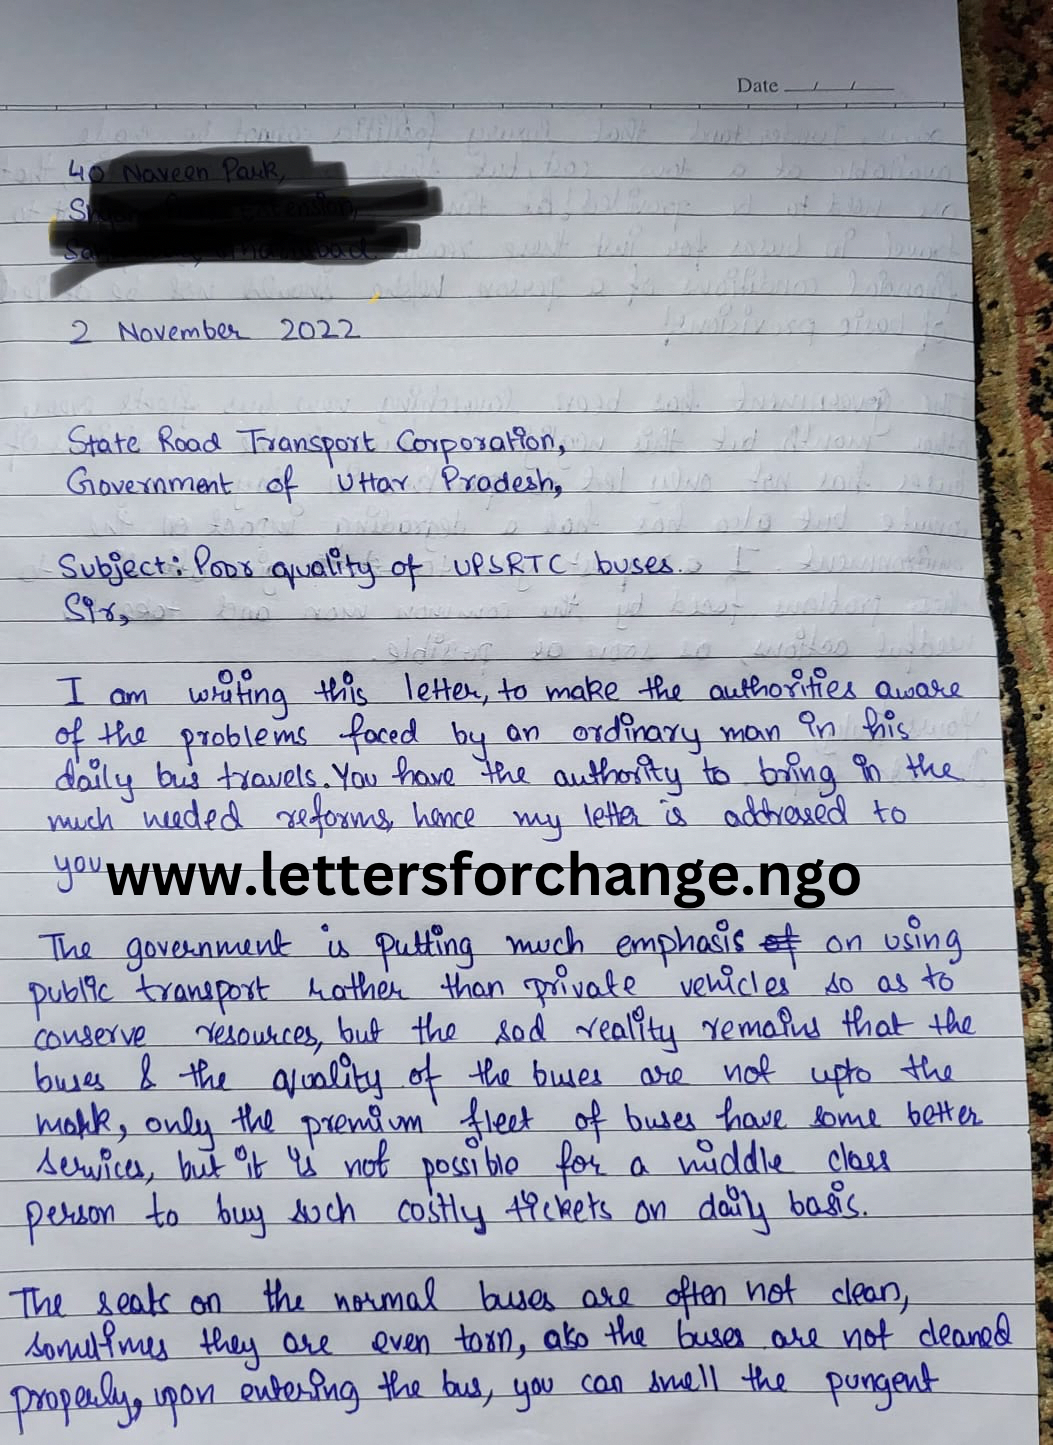 Date
2 November 2022
State Road Transport Corporation,
Government of Uttar Pradesh,
Subject: Poor quality of UPSRTC buses.
Sir,
I am writing this letter, to make the authorities aware
of the problems faced by an ordinary man in his
daily bus travels. You have the authority to bring in the
much needed reforms, hence my letter is addressed to
you
www.lettersforchange.ngo
The government is putting much emphasis of on using
public transport rather than private vehicles so as to
conserve resources, but the sad reality remains that the
buses & the quality of the buses are not upto the
mark, only the premium fleet of buses have some better
services, but it is not possible for a middle class
person to buy such costly tickets on daily basis.
The seats on the normal buses are often not clean,
sometimes they are even torn, also the buses are not cleaned
properly, upon entering the bus, you can smell the pungent